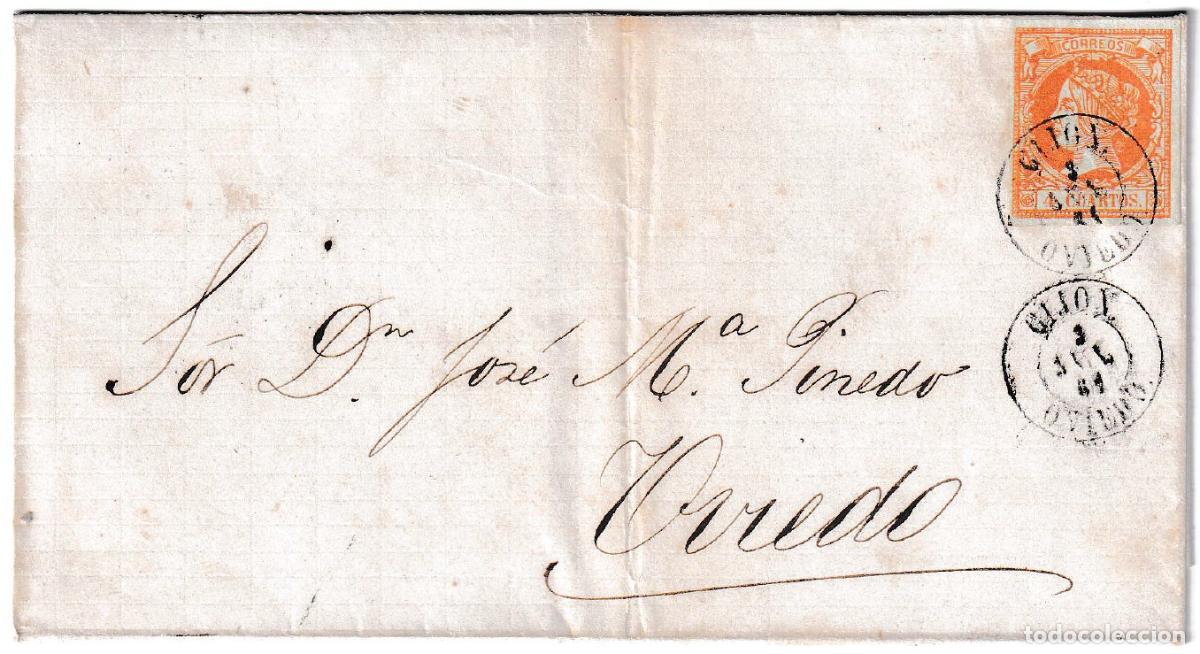 CORREOS
4 CUARTOS.
GIJON
3
JUL
61
OVIEDO.
GIJON.
3
JUL
61
OVIEDO.
Sór Dn. José Mª. Pinedo
Oviedo
todocoleccion